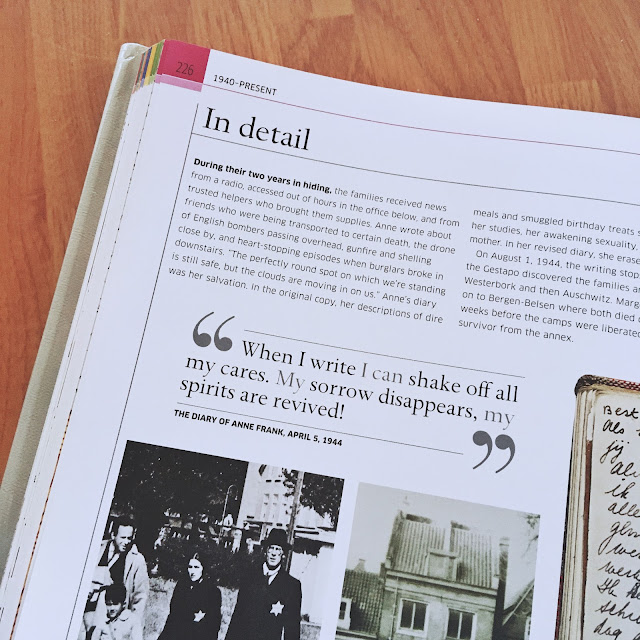 226
1940–PRESENT
In detail
During their two years in hiding, the families received news
from a radio, accessed out of hours in the office below, and from
trusted helpers who brought them supplies. Anne wrote about
friends who were being transported to certain death, the drone
of English bombers passing overhead, gunfire and shelling
close by, and heart-stopping episodes when burglars broke in
downstairs. "The perfectly round spot on which we're standing
is still safe, but the clouds are moving in on us." Anne's diary
was her salvation. In the original copy, her descriptions of dire
meals and smuggled birthday treats s
her studies, her awakening sexuality,
mother. In her revised diary, she erase
On August 1, 1944, the writing stop
the Gestapo discovered the families a
Westerbork and then Auschwitz. Marg
on to Bergen-Belsen where both died
weeks before the camps were liberate
survivor from the annex.
“ When I write I can shake off all
my cares. My sorrow disappears, my
spirits are revived! ”
THE DIARY OF ANNE FRANK, APRIL 5, 1944
Best
Als
jij
ik
alle